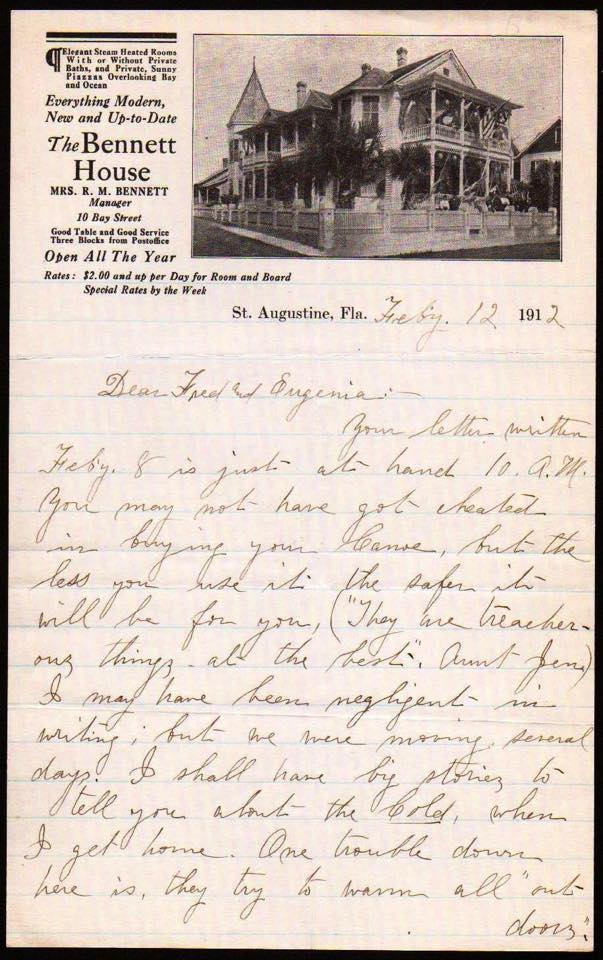 ¶Elegant Steam Heated Rooms
With or Without Private
Baths, and Private, Sunny
Piazzas Overlooking Bay
and Ocean
Everything Modern,
New and Up-to-Date
The Bennett
House
MRS. R. M. BENNETT
Manager
10 Bay Street
Good Table and Good Service
Three Blocks from Postoffice
Open All The Year
Rates: $2.00 and up per Day for Room and Board
Special Rates by the Week
St. Augustine, Fla. Feby. 12 1912
Dear Fred and Eugenia:-
Your letter written
Feby. 8 is just at hand 10. A.M.
You may not have got cheated
in buying your Canoe, but the
less you use it the safer it
will be for you, ("They are treacher-
ous things at the best". Aunt Jen)
I may have been negligent in
writing; but we were moving several
days. I shall have big stories to
tell you about the Cold, when
I get home. One trouble down
here is, they try to warm all "out
doors".